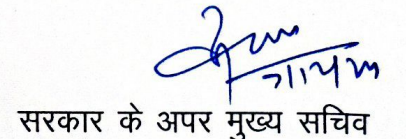 सरकार के अपर मुख्य सचिव